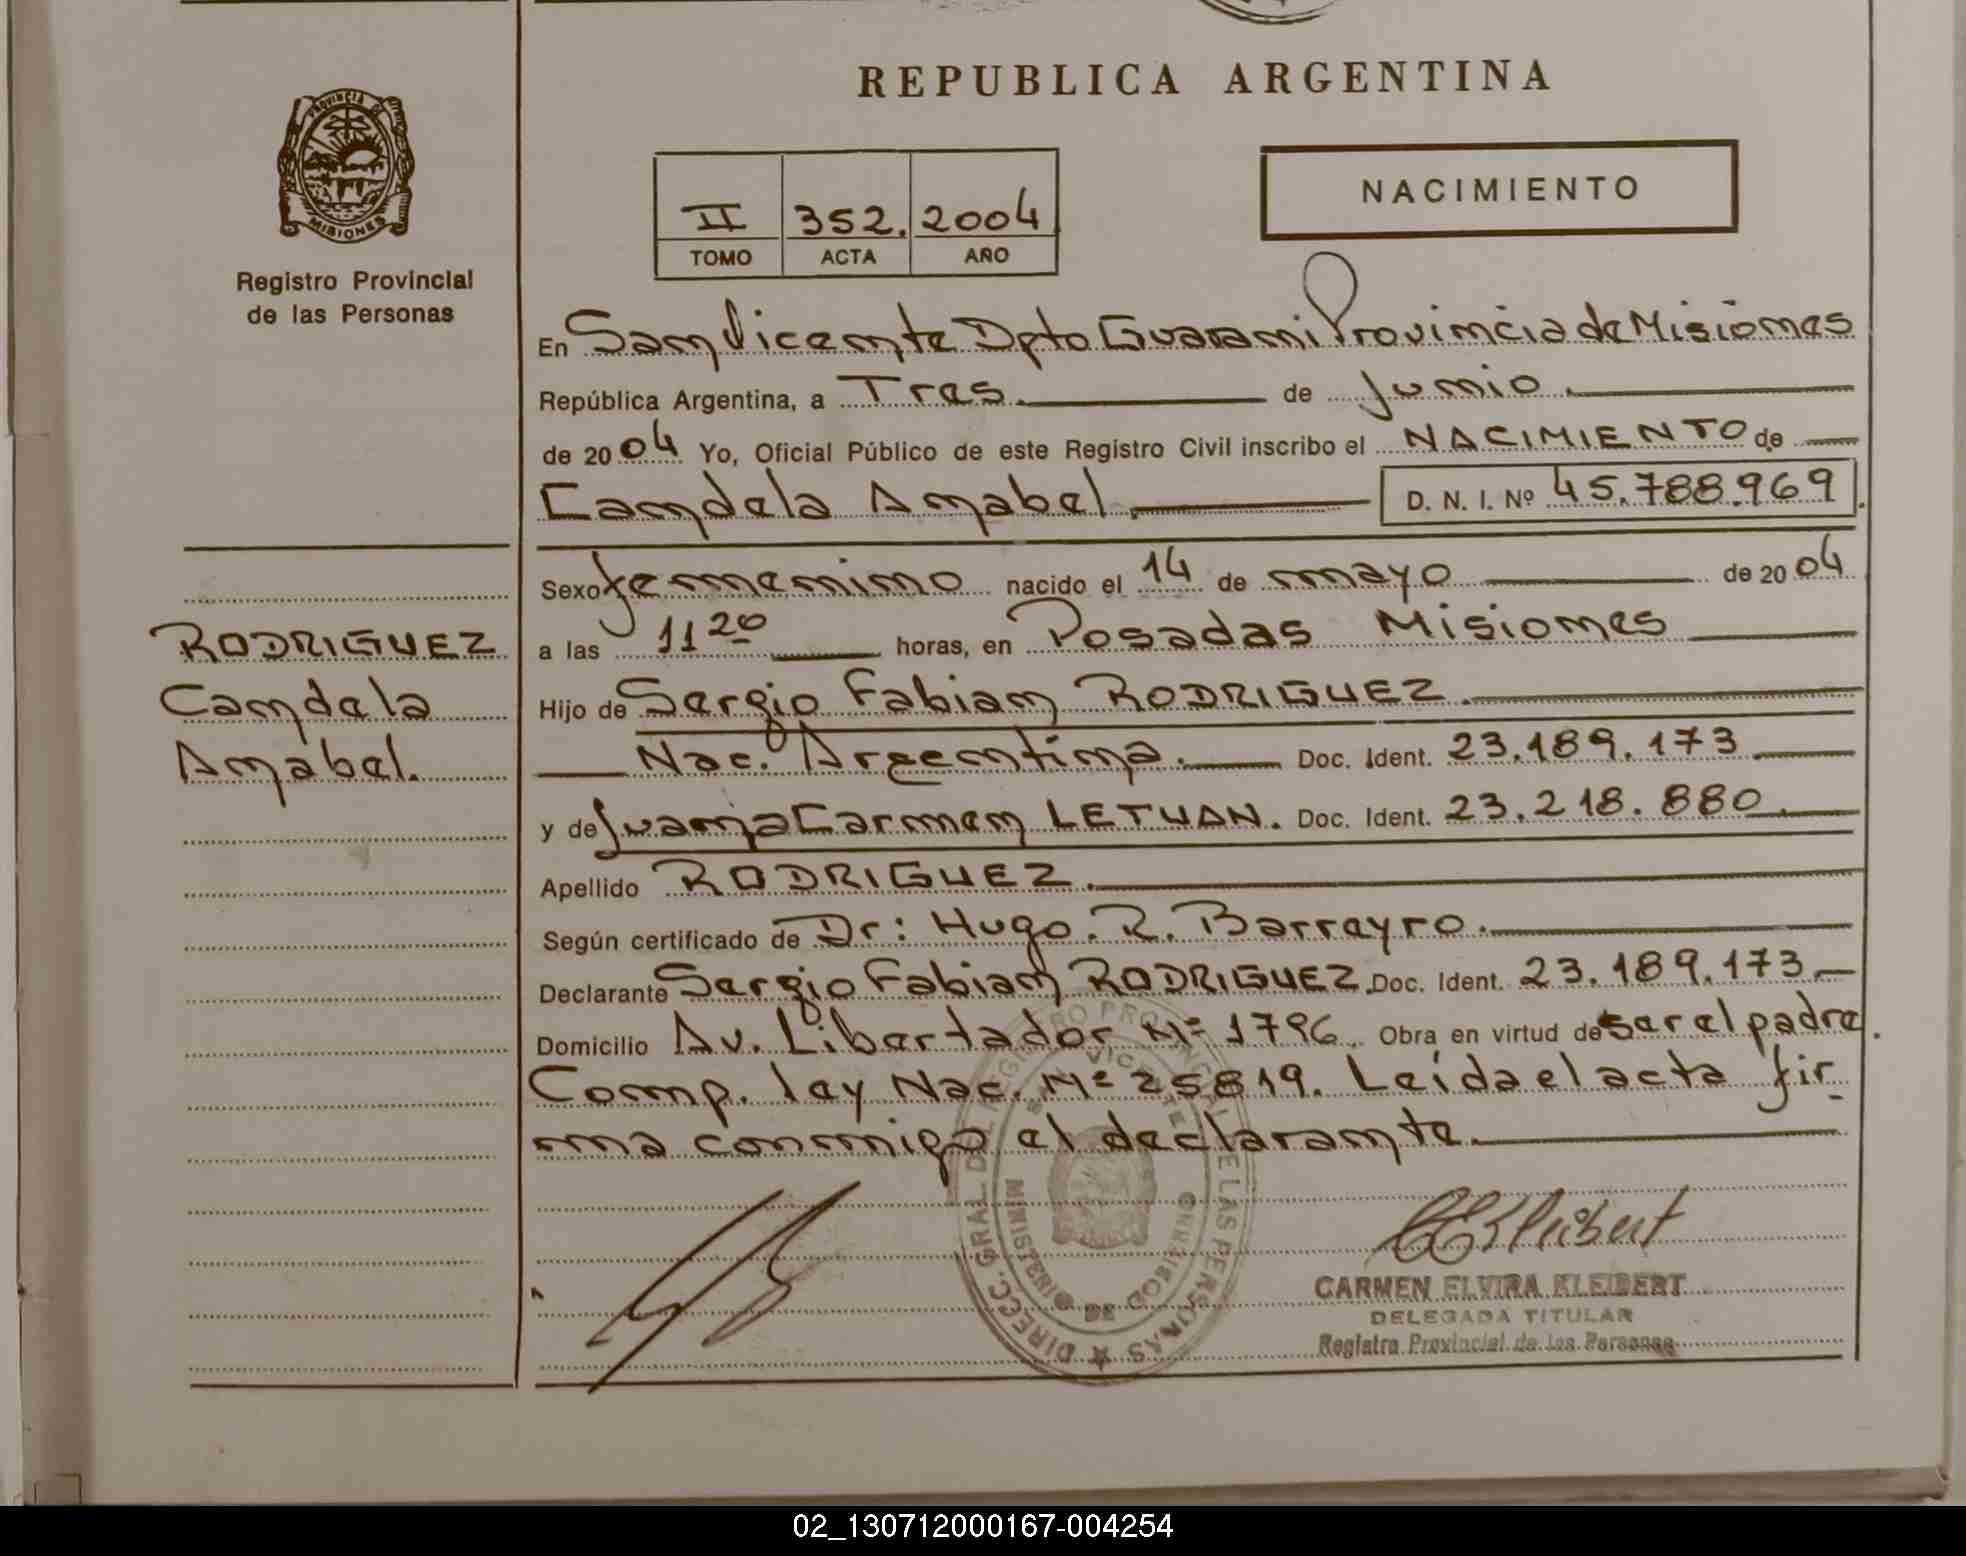 REPUBLICA ARGENTINA
PROVINCIA DE
MISIONES
Registro Provincial
de las Personas
II 352. 2004
TOMO ACTA AÑO
NACIMIENTO
En San Vicente Dpto Guarani Provincia de Misiones
República Argentina, a Tres. de Junio.
de 2004 Yo, Oficial Público de este Registro Civil inscribo el NACIMIENTO de
Candela Anabel. D. N. I. Nº 45.788.969
Sexo femenino nacido el 14 de mayo de 2004
a las 11 20 horas, en Posadas Misiones
Hijo de Sergio Fabian RODRIGUEZ.
Nac. Argentina. Doc. Ident. 23.189.173
y de Juana Carmen LETUAN. Doc. Ident. 23.218.880.
Apellido RODRIGUEZ.
Según certificado de Dr: Hugo. R. Barrayro.
Declarante Sergio Fabian RODRIGUEZ. Doc. Ident. 23.189.173.
Domicilio Av. Libertador Nº 1796. Obra en virtud de ser el padre.
Comp. ley Nac. Nº 25819. Leida el acta fir-
ma conmigo el declarante.
RODRIGUEZ
Candela
Anabel.
DIRECC. GRAL. DEL REGISTRO PROVINCIAL DE LAS PERSONAS
MINISTERIO DE GOBIERNO
CARMEN ELVIRA KLEIBERT
DELEGADA TITULAR
Registro Provincial de las Personas
02_130712000167-004254